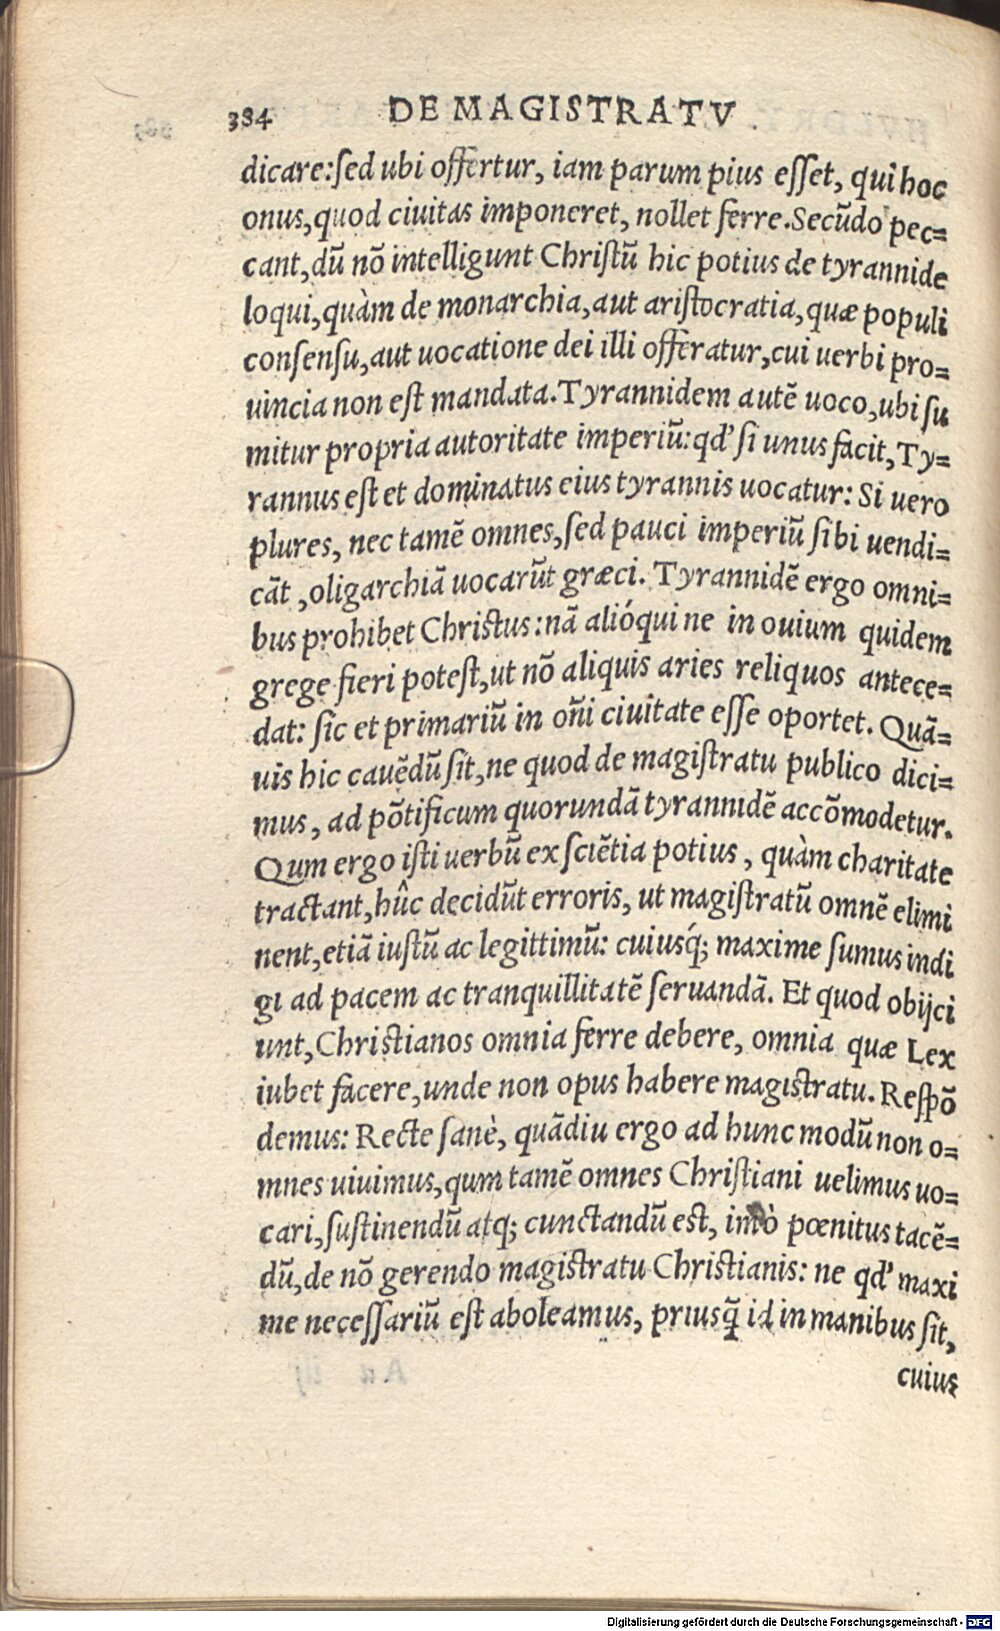 384 DE MAGISTRATV
dicare:ſed ubi offertur, iam parum pius eſſet, qui hoc
onus,quod ciuitas imponeret, nollet ferre.Secũdo pec=
cant,dũ nõ intelligunt Chriſtũ hic potius de tyrannide
loqui,quàm de monarchia,aut ariſtocratia,quæ populi
conſenſu,aut uocatione dei illi offeratur,cui uerbi pro=
uincia non eſt mandata.Tyrannidem autẽ uoco,ubi ſu
mitur propria autoritate imperiũ:qđ ſi unus facit,Ty=
rannus eſt et dominatus eius tyrannis uocatur: Si uero
plures, nec tamẽ omnes,ſed pauci imperiũ ſibi uendi=
cãt ,oligarchiã uocarũt græci. Tyrannidẽ ergo omni=
bus prohibet Chriſtus:nã alióqui ne in ouium quidem
grege fieri poteſt,ut nõ aliquis aries reliquos antece=
dat: ſic et primariũ in oñi ciuitate eſſe oportet. Quã=
uis hic cauẽdũ ſit,ne quod de magiſtratu publico dici=
mus, ad põtificum quorundã tyrannidẽ accõmodetur.
Qum ergo iſti uerbũ ex ſciẽtia potius, quàm charitate
tractant,hûc decidũt erroris, ut magiſtratũ omnẽ elimi
nent,etiã iuſtũ ac legittimũ: cuiusq́; maxime ſumus indi
gi ad pacem ac tranquillitatẽ ſeruandã. Et quod obijci
unt,Chriſtianos omnia ferre debere, omnia quæ Lex
iubet facere,unde non opus habere magiſtratu. Reſpõ
demus: Recte ſanè, quãdiu ergo ad hunc modũ non o=
mnes uiuimus,qum tamẽ omnes Chriſtiani uelimus uo=
cari,ſuſtinendũ atq; cunctandũ est, imò pœnitus tacẽ=
dũ,de nõ gerendo magiſtratu Chriſtianis: ne qđ maxi
me neceſſariũ eſt aboleamus, priusq̃ id in manibus ſit,
cuius
Digitalisierung gefördert durch die Deutsche Forschungsgemeinschaft - DFG